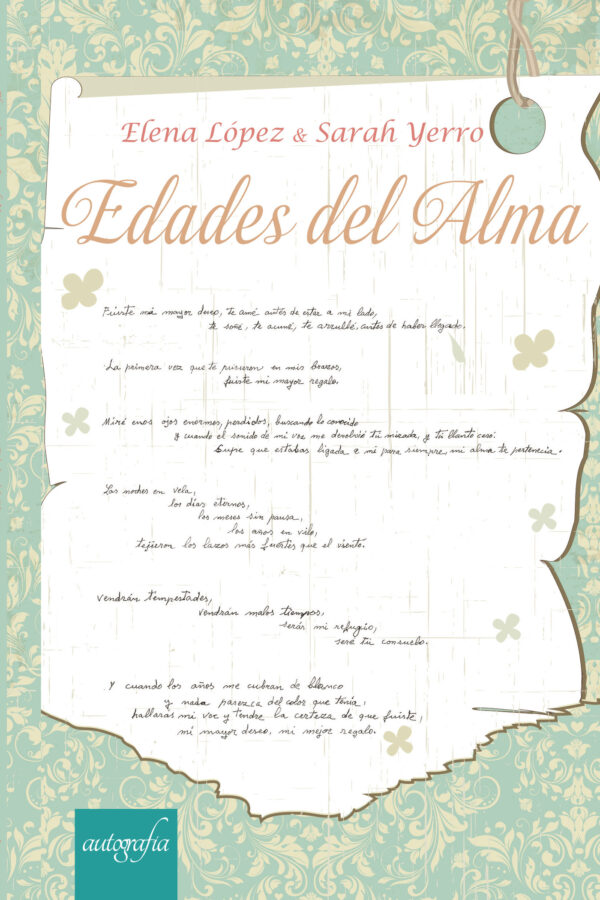 Elena López & Sarah Yerro
Edades del Alma
Fuiste mi mayor deseo, te amé antes de estar a mi lado,
te soñé, te acuné, te arrullé antes de haber llegado.
La primera vez que te pusieron en mis brazos,
fuiste mi mayor regalo.
Miré esos ojos enormes, perdidos, buscando lo conocido
y cuando el sonido de mi voz me devolvió tú mirada, y tú llanto cesó.
Supe que estabas ligada a mi para siempre, mi alma te pertenecía.
Las noches en vela,
los días eternos,
los meses sin pausa,
los años en vilo,
tejieron los lazos más fuertes que el viento.
Vendrán tempestades,
vendrán malos tiempos,
serás mi refugio,
seré tú consuelo.
Y cuando los años me cubran de blanco
y nada parezca del color que tenía,
hallaras mi voz y tendre la certeza de que fuiste,
mi mayor deseo, mi mejor regalo.
autografía